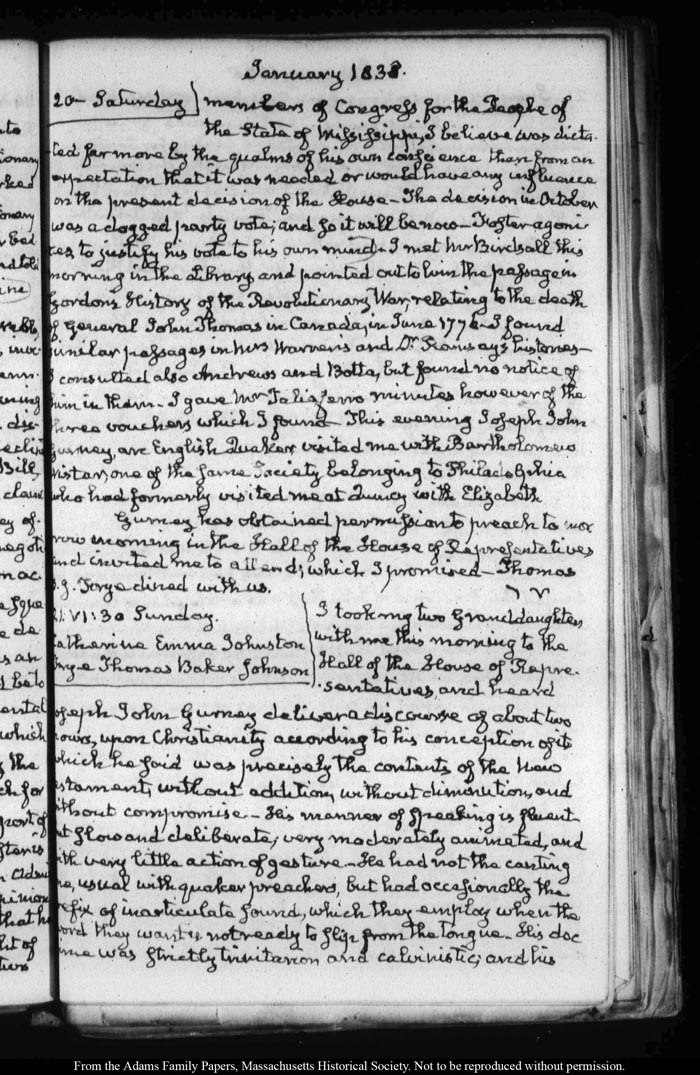 January 1838.
20 Saturday members of Congress for the People of
the State of Mississippi, I believe was dicta-
ted far more by the qualms of his own conscience than from an
expectation that it was needed or would have any influence
on the present decision of the House - The decision in October
was a dogged party vote; and so it will be now - Foster agoni-
zes to justify his vote to his own mind - I met Mr Birdsall this
morning in the Library and pointed out to him the passage in
Gordons History of the Revolutionary War, relating to the death
of General John Thomas in Canada, in June 1776 - I found
similar passages in Mrs Warren's and Dr Ramsay's histories -
I consulted also Andrews and Botta, but found no notice of
him in them - I gave Mr Taliaferro minutes however of the
three vouchers which I found - This evening Joseph John
Gurney, an English Quaker visited me with Bartholomew
Wistar, one of the same Society belonging to Philadelphia
who had formerly visited me at Quincy with Elizabeth
Gurney has obtained permission to preach to mor
row morning in the Hall of the House of Representatives
and invited me to attend; which I promised - Thomas
B. J. Frye dined with us.
21. VI:30 Sunday.
Catherine Emma Johnston
Frye Thomas Baker Johnson
I took my two Granddaughters
with me this morning to the
Hall of the House of Repre-
sentatives, and heard
Joseph John Gurney deliver a discourse of about two
hours, upon Christianity according to his conception of it
which he said was precisely the contents of the New
Testament, without addition, without diminution, and
without compromise - His manner of speaking is fluent
but slow and deliberate, very moderately animated, and
with very little action of gesture - He had not the canting
tone, usual with quaker preachers, but had occasionally the
prefix of inarticulate sound, which they employ when the
word they want is not ready to slip from the tongue - His doc
trine was strictly trinitarian and calvinistic; and his
From the Adams Family Papers, Massachusetts Historical Society. Not to be reproduced without permission.